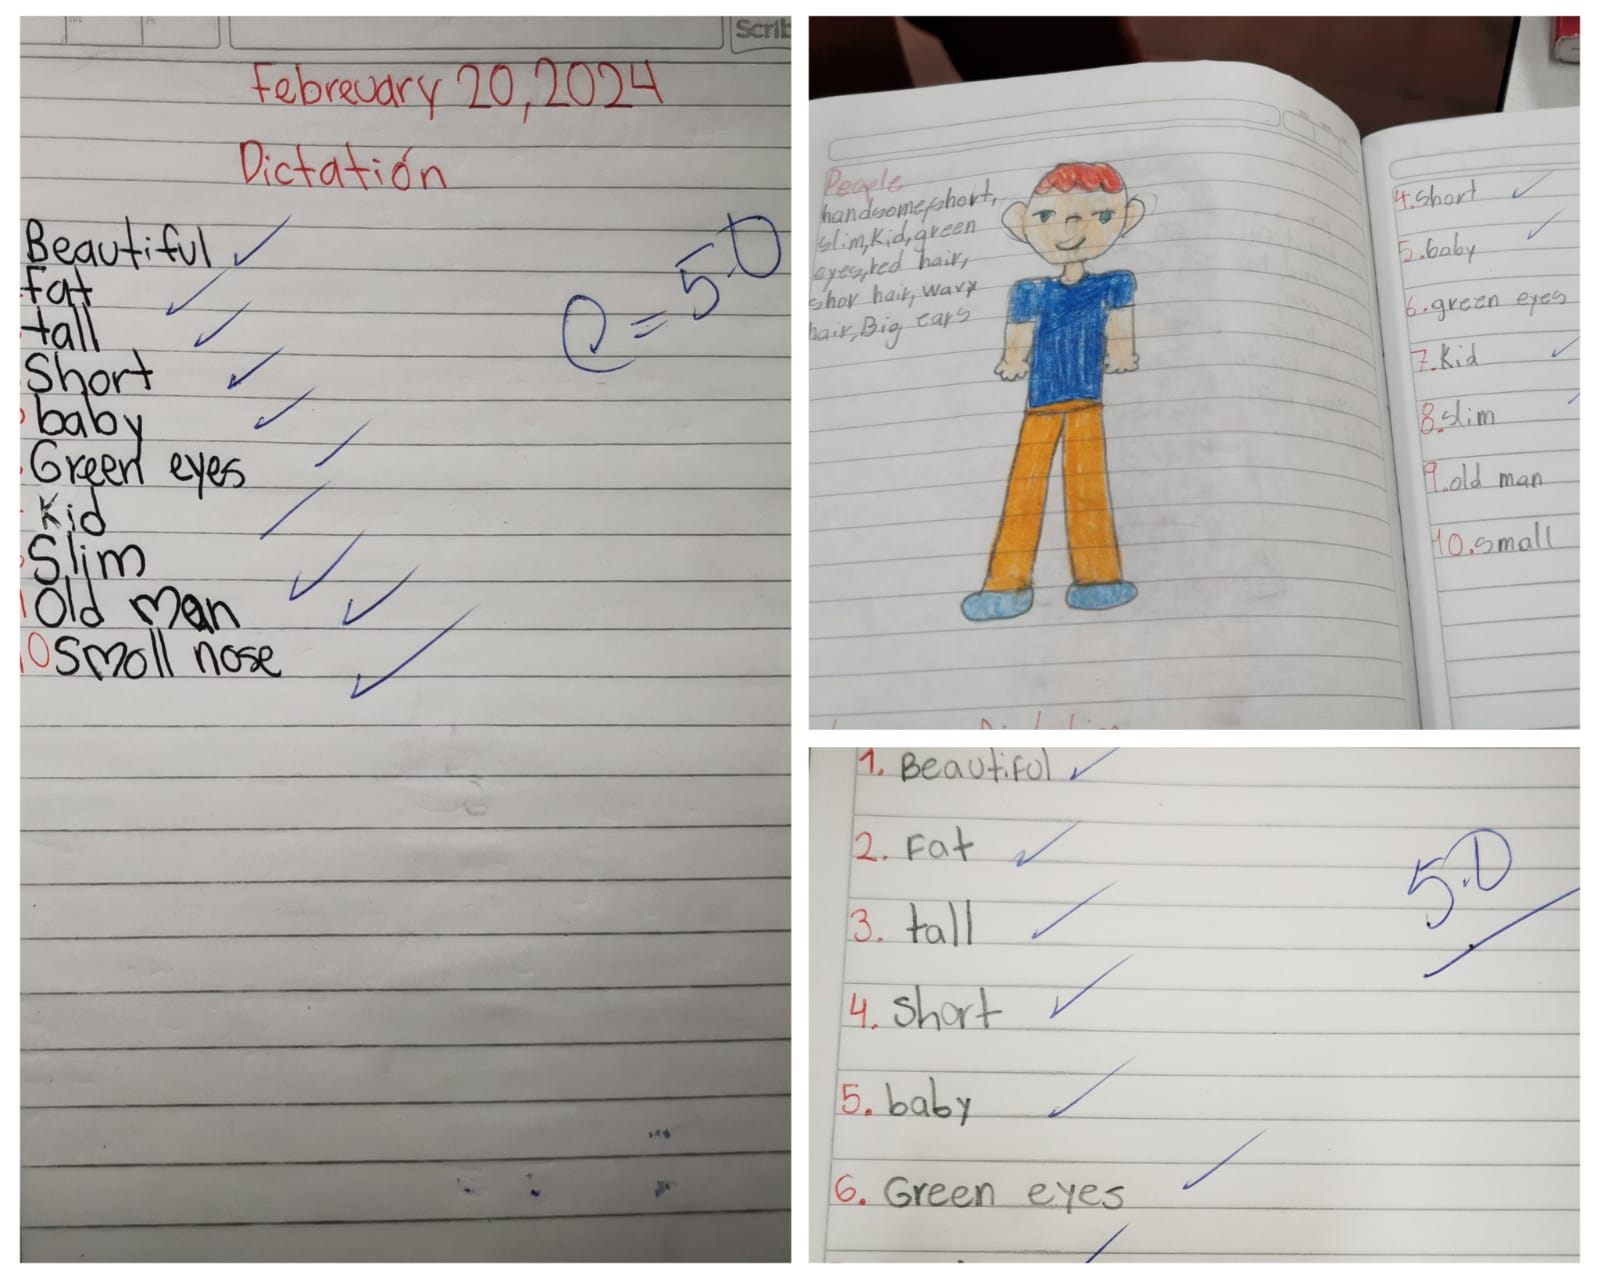 Scrib
Febreuary 20, 2024
Dictatión
Beautiful
fat
tall
Short
baby
Green eyes
Kid
Slim
Old man
10 Small nose
= 5.0
People
handsome, short,
slim, Kid, green
eyes, red hair,
shor hair, wavy
hair, Big ears
4. Short
5. baby
6. green eyes
7. Kid
8. slim
9. old man
10. small
1. Beautiful
2. Fat
3. tall
4. Short
5. baby
6. Green eyes
5.0